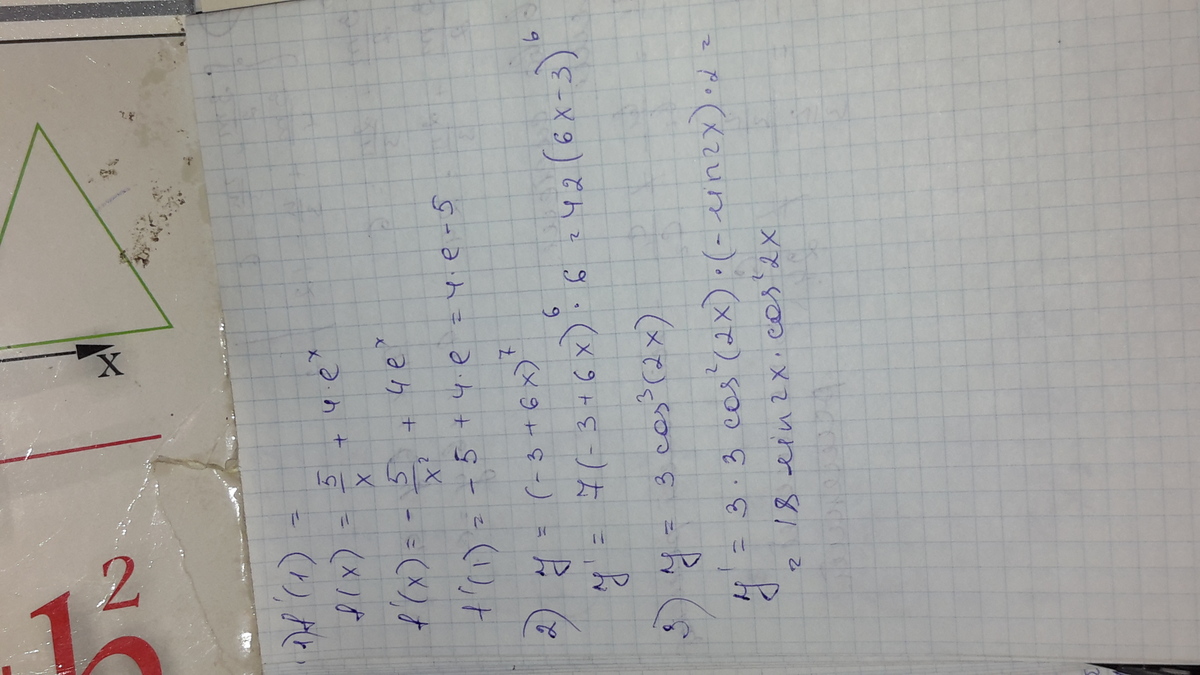 1) f'(1) =
f(x) = 5/x + 4·eˣ
f'(x) = - 5/x² + 4eˣ
f'(1) = - 5 + 4·e = 4·e - 5
2) y = (-3 + 6x)⁷
y' = 7(-3 + 6x)⁶ · 6 = 42(6x-3)⁶
3) y = 3 cos³(2x)
y' = 3·3 cos²(2x)·(-sin2x)·2 =
= 18 sin2x·cos²2x
x
b²